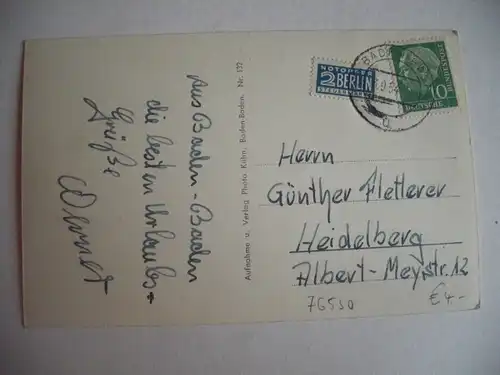 Aus Baden-Baden
die besten Urlaubs-
Grüße
Aufnahme u. Verlag Photo Kühn, Baden-Baden. Nr. 137
NOTOPFER
2 BERLIN
STEUERMARKE
BADEN
10
DEUTSCHE
Herrn
Günther Fletterer
Heidelberg
Albert-Meystr. 12
76530
€ 4-